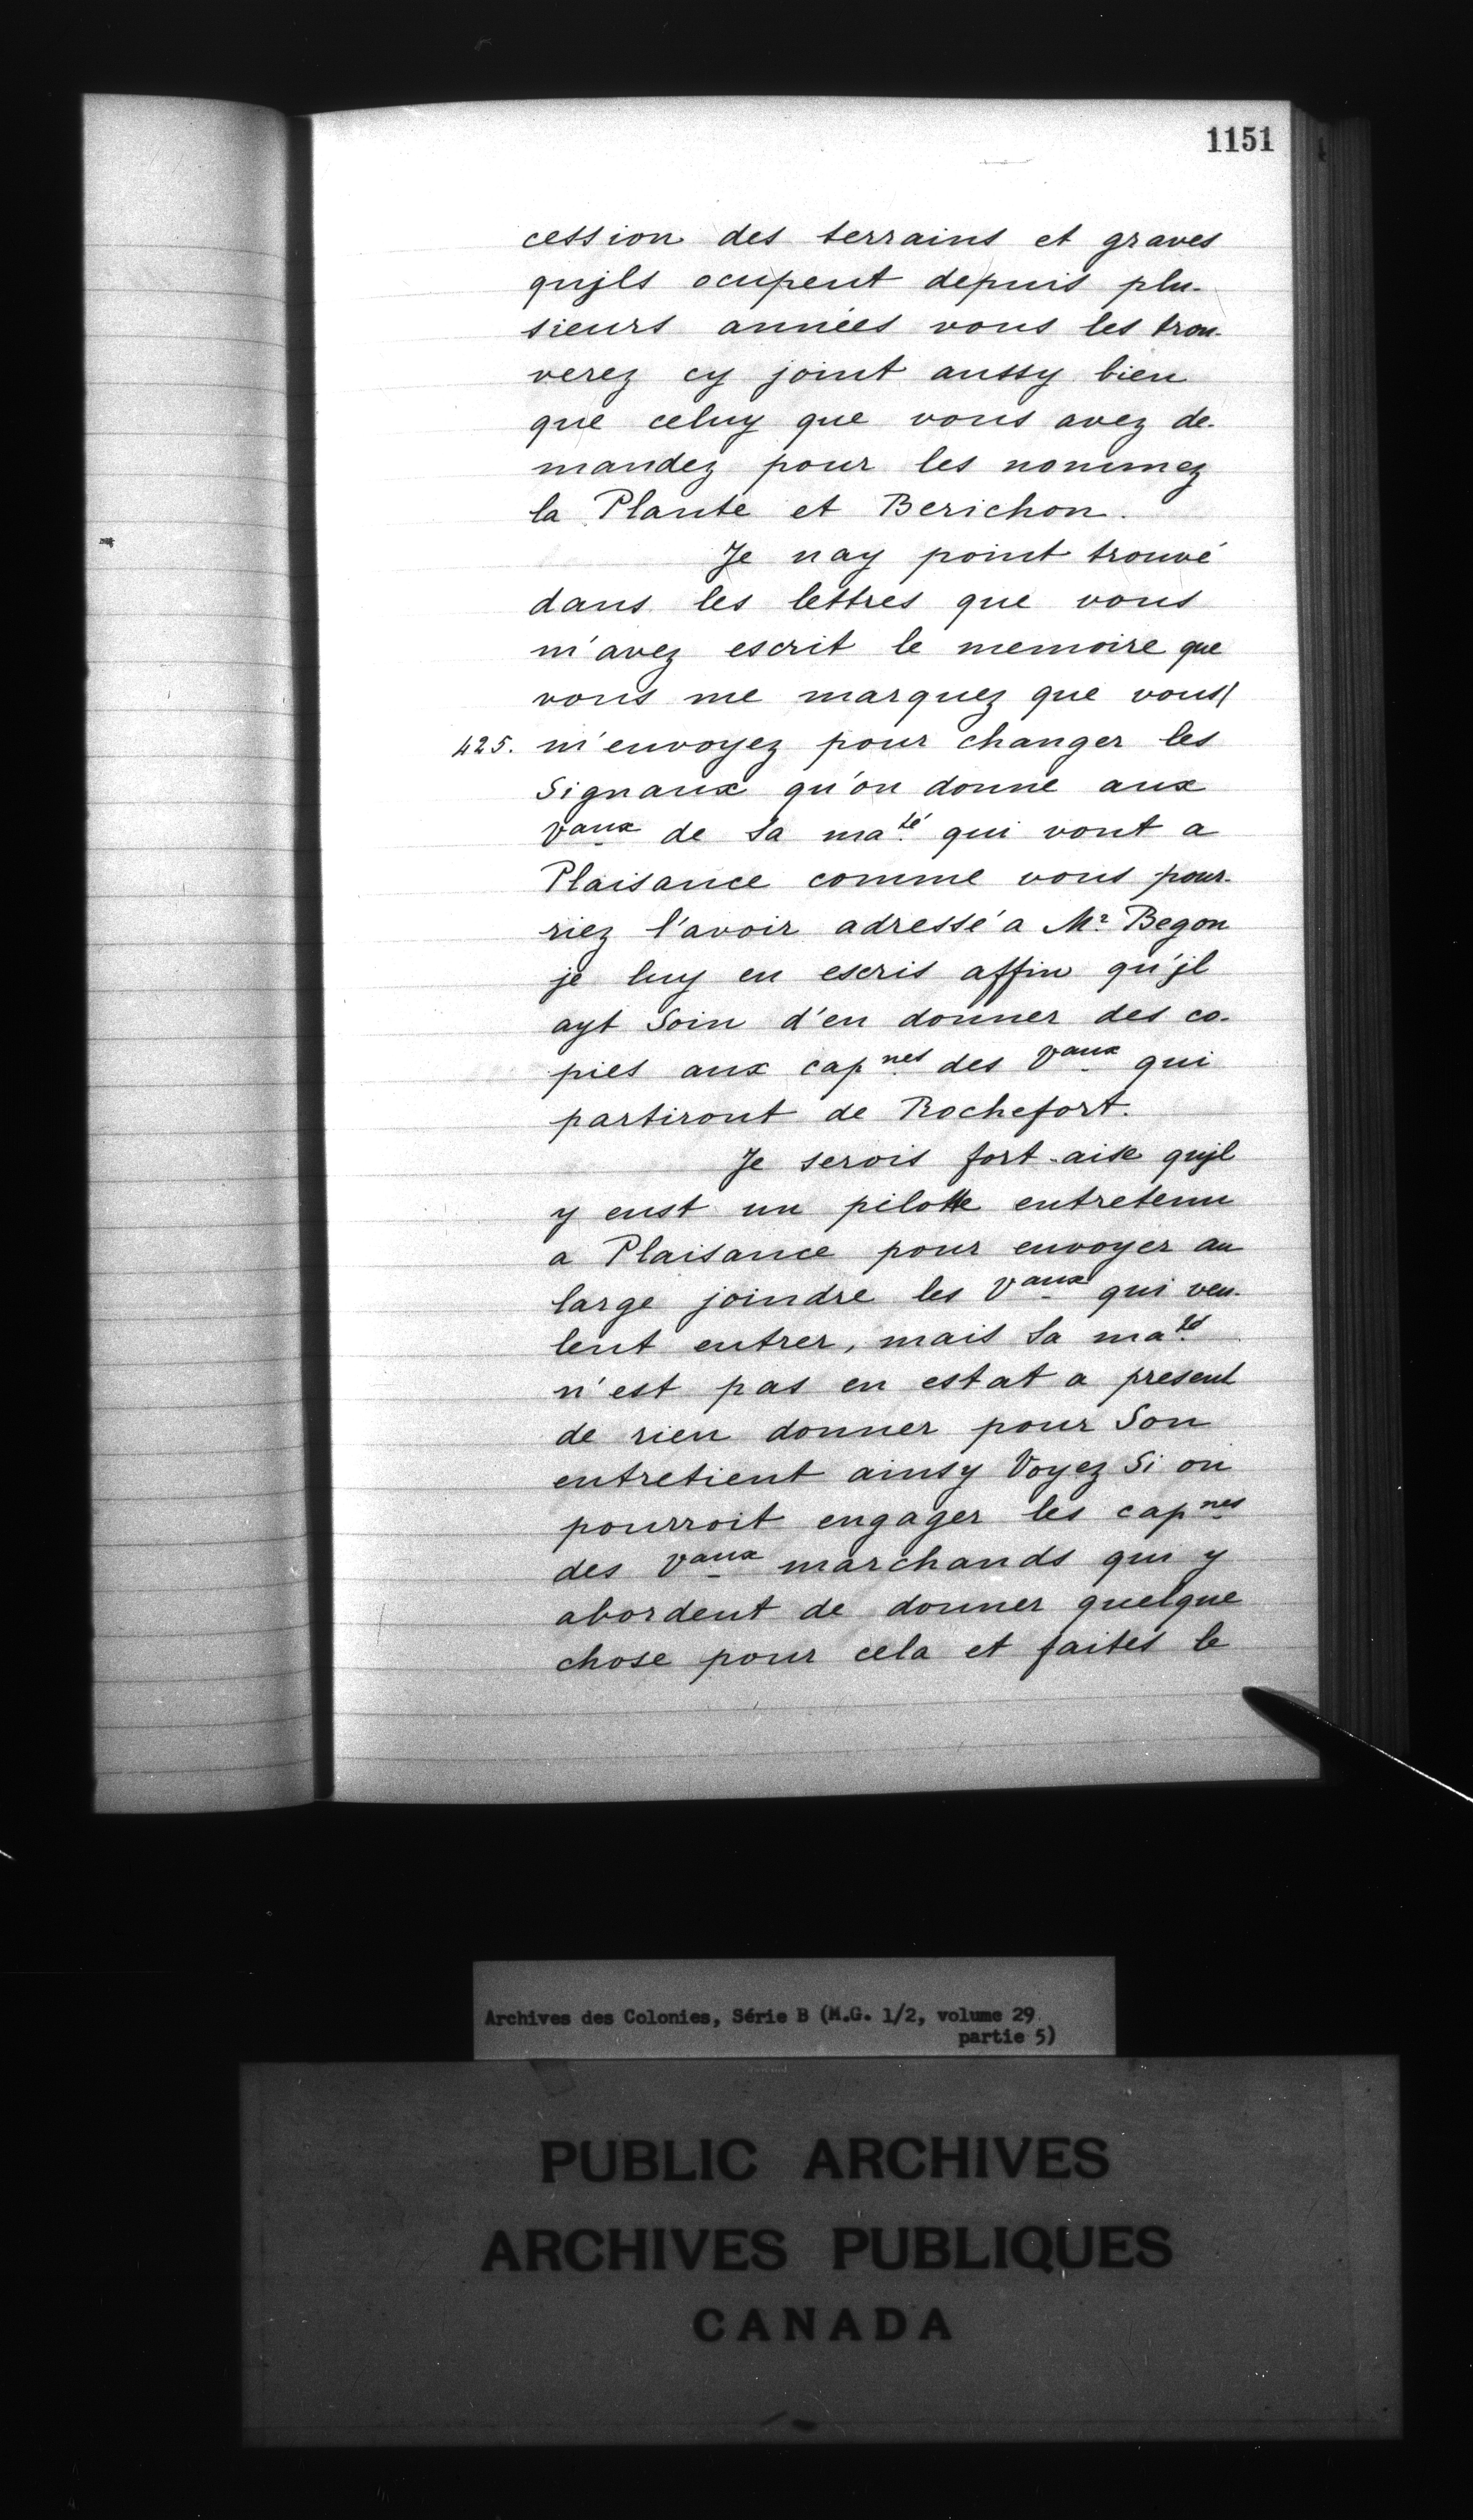 1151
cession des terrains et graves
qujls ocupent depuis plu-
sieurs années vous les trou-
verez cy joint aussy bien
que celuy que vous avez de-
mandez pour les nommez
la Plante et Berichon.
Je nay point trouvé
dans les lettres que vous
m'avez escrit le memoire que
vous me marquez que vous/
425. m'envoyez pour changer les
Signaux qu'on donne aux
Vaux de Sa maté qui vont a
Plaisance comme vous pour-
riez l'avoir adressé a Mr Begon
je luy en escris affin qu'jl
ayt Soin d'en donner des co-
pies aux capnes des Vaux qui
partiront de Rochefort.
Je serois fort aise qujl
y eust un pilotte entretenu
a Plaisance pour envoyer au
large joindre les Vaux qui veu-
lent entrer, mais Sa maté
n'est pas en estat a present
de rien donner pour Son
entretient ainsy Voyez Si on
pourroit engager les capnes
des Vaux marchands qui y
abordent de donner quelque
chose pour cela et faites le
Archives des Colonies, Série B (M.G. 1/2, volume 29
partie 5)
PUBLIC ARCHIVES
ARCHIVES PUBLIQUES
CANADA